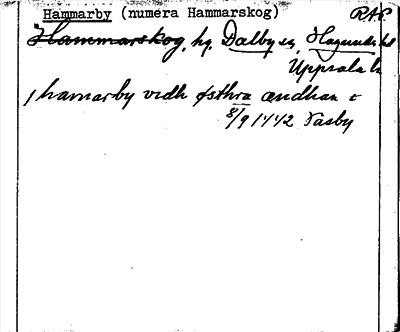 Hammarby (numera Hammarskog) RAP
Hammarskog, hg, Dalby sn, Hagunda hd
Uppsala l:
j hamarby vidh østhra ændhan c
8/9 1442 Väsby